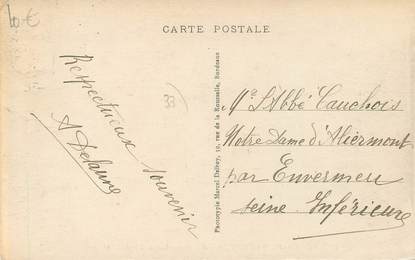 10 €
CARTE POSTALE
Respectueux souvenir
A Delaune
33
Phototypie Marcel Delboy, 59, rue de la Rousselle, Bordeaux
Mr L'Abbé Cauchois
Notre Dame d'Aliermont
par Envermeu
Seine Inférieure